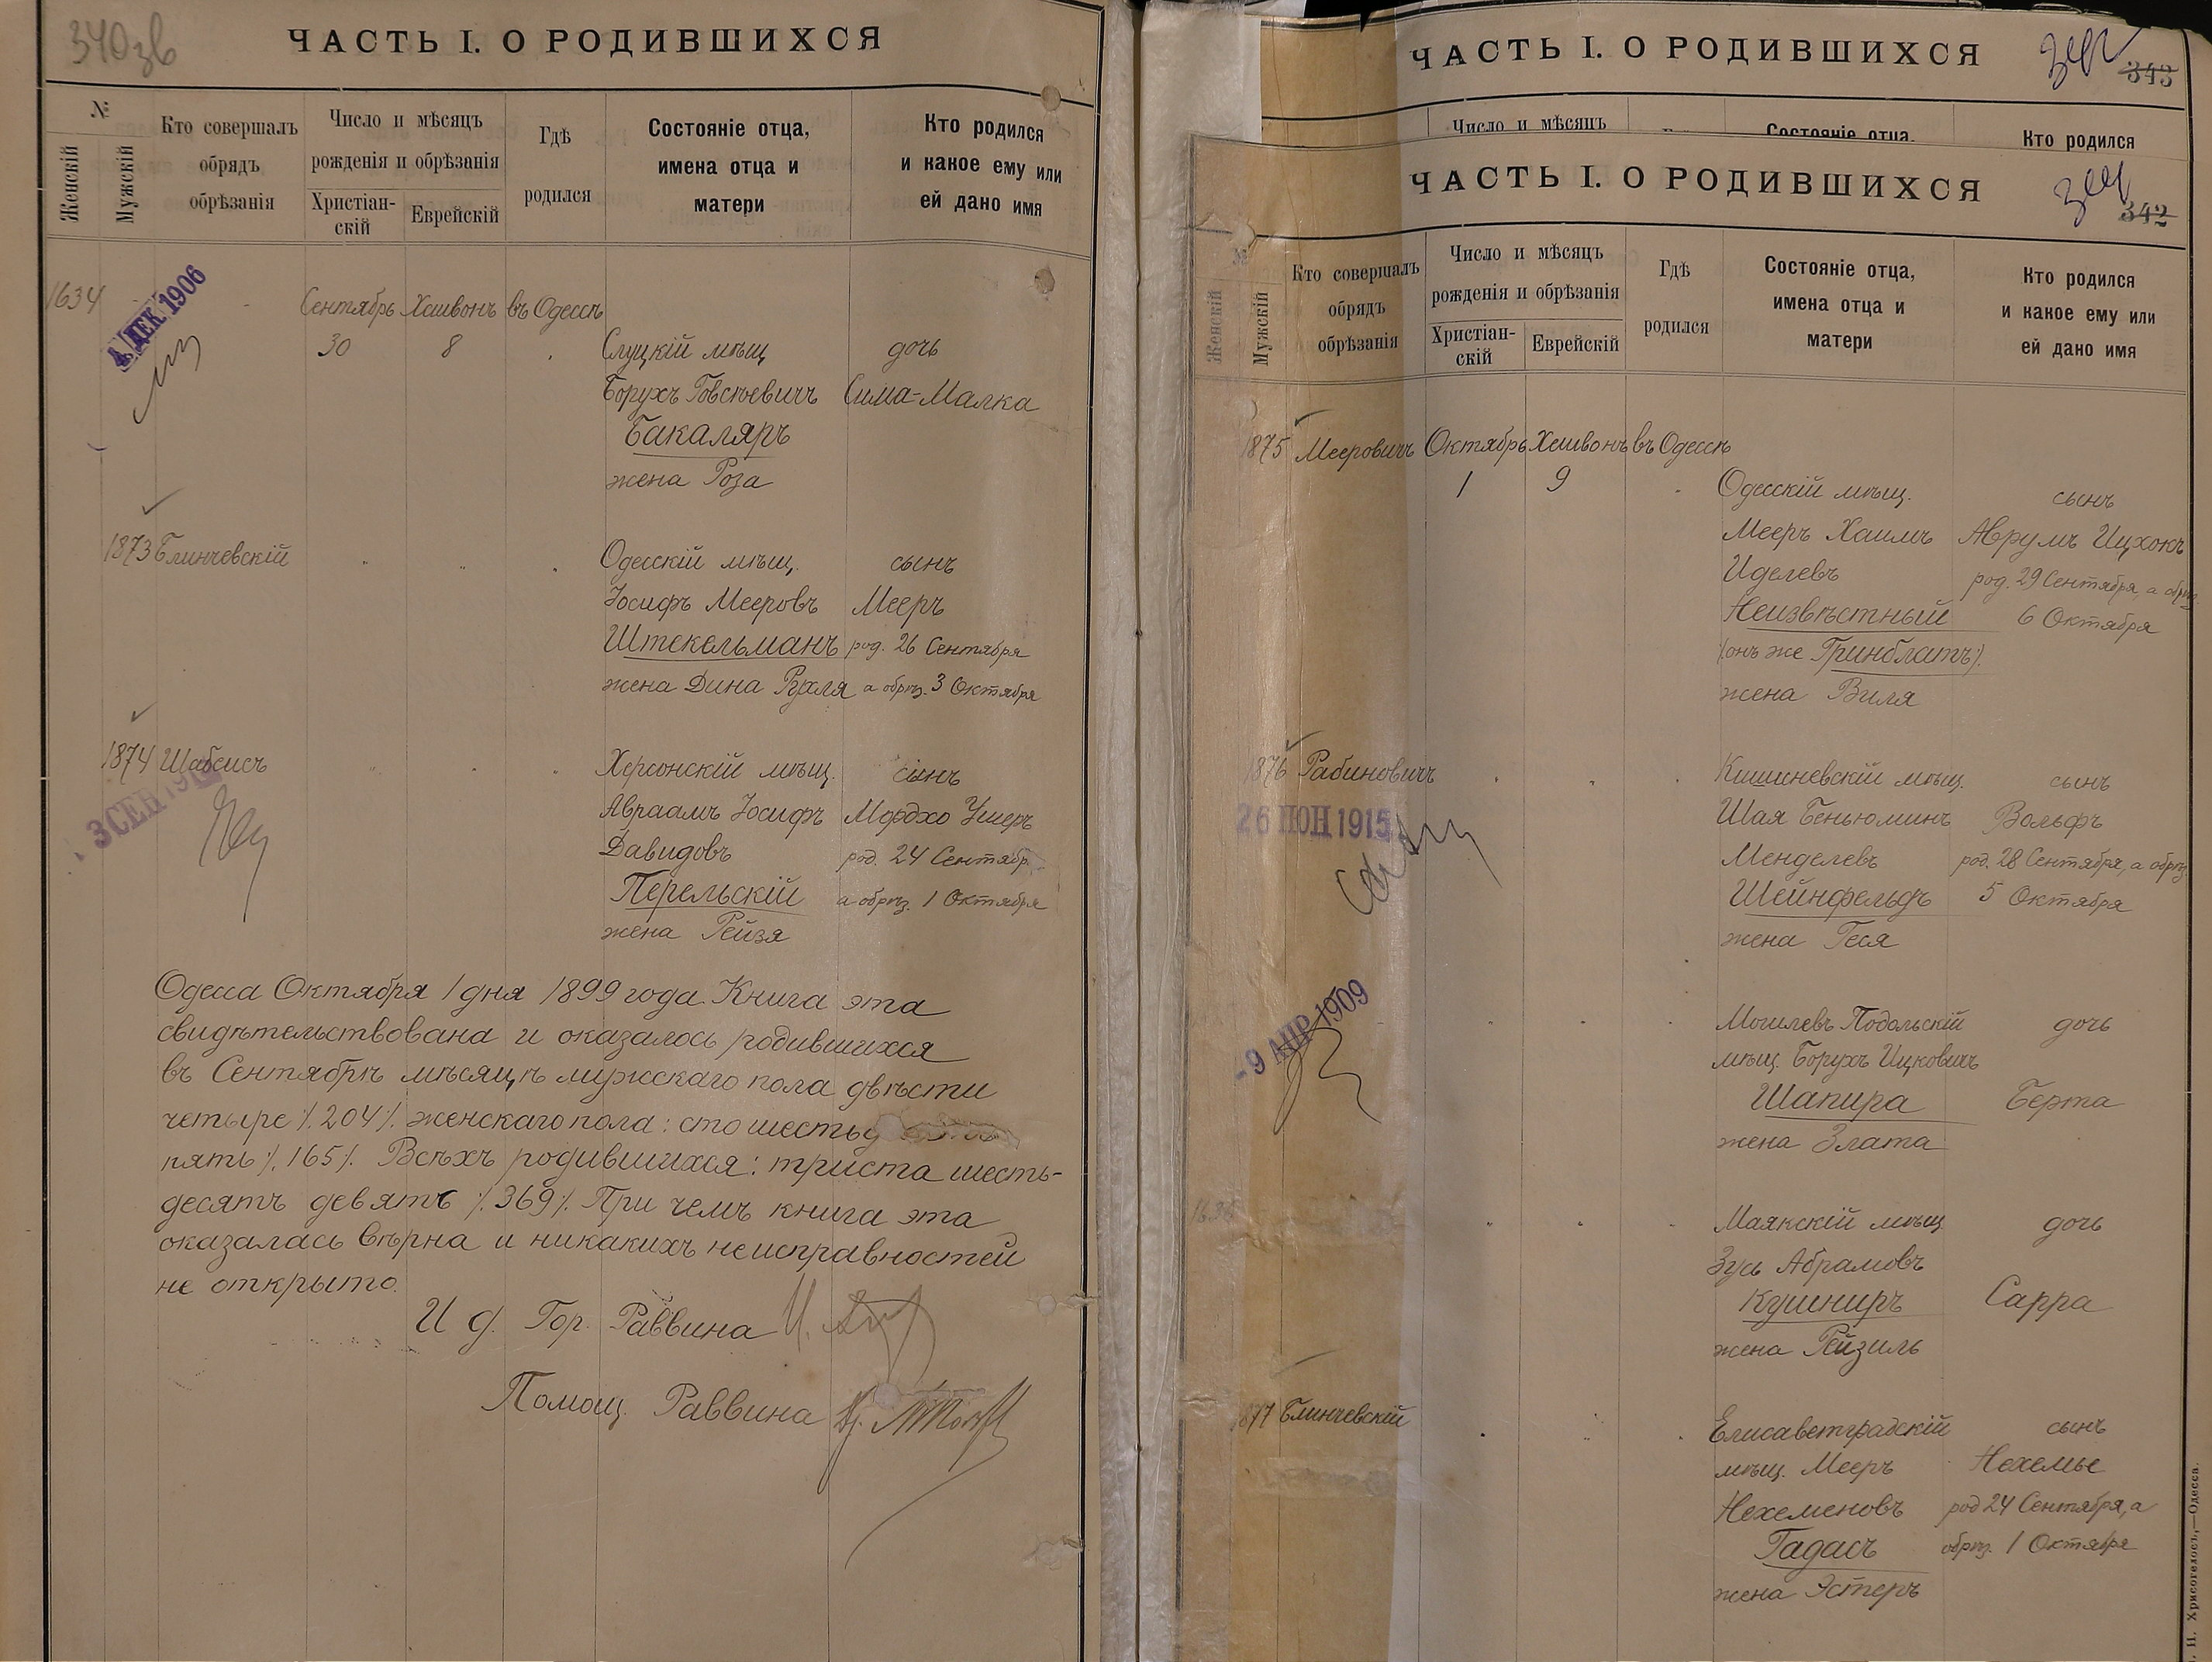 340зв
ЧАСТЬ I. О РОДИВШИХСЯ
№
Женскій
Мужскій
Кто совершалъ
обрядъ
обрѣзанія
Число и мѣсяцъ
рожденія и обрѣзанія
Христіан-
скій
Еврейскій
Гдѣ
родился
Состояніе отца,
имена отца и
матери
Кто родился
и какое ему или
ей дано имя
1634
4 ДЕК 1906
Сентябрь Хешвонъ въ Одессѣ
30 8
Слуцкій мѣщ дочь
Борухъ Говсѣевичъ Сима-Малка
Бакаляръ
жена Роза
1873 Блинчевскій
Одесскій мѣщ. сынъ
Іосифъ Мееровъ Мееръ
Штекельманъ род. 26 Сентября
жена Дина Рухля а обрѣз. 3 Октября
1874 Шабсисъ
3 СЕН
Херсонскій мѣщ. сынъ
Авраамъ Іосифъ Мордхо Ушеръ
Давидовъ род. 24 Сентябр.
Перельскій а обрѣз. 1 Октября
жена Рейзя
Одесса Октября 1 дня 1899 года. Книга эта
свидѣтельствована и оказалось родившихся
въ Сентябрѣ мѣсяцѣ мужскаго пола двѣсти
четыре /.204/. женскаго пола: сто шестьд
пять /.165/. Всѣхъ родившихся: триста шесть-
десятъ девять /.369/. При чемъ книга эта
оказалась вѣрна и никакихъ неисправностей
не открыто.
И д. Гор. Раввина
Помощ. Раввина
ЧАСТЬ I. О РОДИВШИХСЯ
343
Число и мѣсяцъ
Состояніе отца,
Кто родился
ЧАСТЬ I. О РОДИВШИХСЯ
342
№
Женскій
Мужскій
Кто совершалъ
обрядъ
обрѣзанія
Число и мѣсяцъ
рожденія и обрѣзанія
Христіан-
скій
Еврейскій
Гдѣ
родился
Состояніе отца,
имена отца и
матери
Кто родился
и какое ему или
ей дано имя
1875 Мееровичъ Октябрь Хешвонъ въ Одессѣ
1 9
Одесскій мѣщ. сынъ
Мееръ Хаимъ Аврумъ Ицхокъ
Иделевъ род. 29 Сентября, а обрѣз
Неизвѣстный 6 Октября
/онъ же Гринблатъ/.
жена Виля
1876 Рабиновичъ
26 ІЮН 1915
Кишиневскій мѣщ. сынъ
Шая Беньюминъ Вольфъ
Менделевъ род. 28 Сентября, а обрѣз.
Шейнфельдъ 5 Октября
жена Геся
-9 АПР 1909
Могилевъ Подольскій дочь
мѣщ. Борухъ Ицковичъ
Шапира Берта
жена Злата
Маякскій мѣщ дочь
Зусь Абрамовъ
Кушниръ Сарра
жена Рейзиль
877 Блинчевскій
Елисаветградскій сынъ
мѣщ. Мееръ Нехемье
Нехеменовъ род 24 Сентября, а
Гадасъ обрѣз. 1 Октября
жена Эстеръ
Хрисогелосъ,—Одесса.